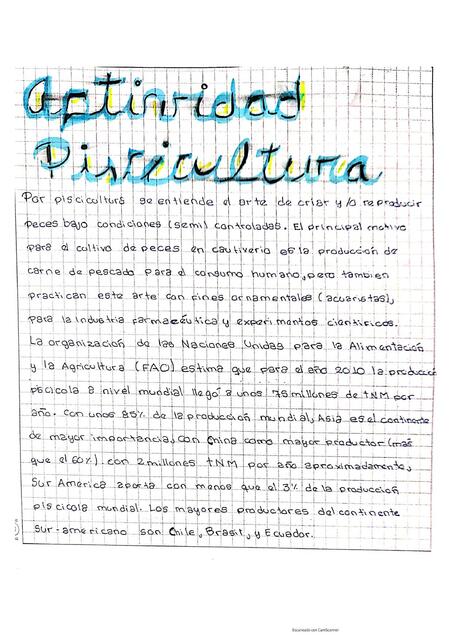 Actividad
Piscicultura
Por piscicultura se entiende el arte de criar y/o reproducir
peces bajo condiciones (semi) controladas. El principal motivo
para el cultivo de peces en cautiverio es la producción de
carne de pescado para el consumo humano, pero tambien
practican este arte con fines ornamentales (acuaristas),
para la industria farmacéutica y experimentos cientificos.
La organización de las Naciones Unidas para la Alimentación
y la Agricultura (FAO) estima que para el año 2010 la producció
piscicola a nivel mundial llegó a unos 75 millones de TNM por
año. Con unos 85% de la producción mundial, Asia es el continente
de mayor importancia, con China como mayor productor (más
que el 60%). con 2 millones TNM por año aproximadamente,
Sur America aporta con menos que el 3% de la producción
piscicola mundial. Los mayores productores del continente
Sur-americano son Chile, Brasil, y Ecuador.
Escaneado con CamScanner